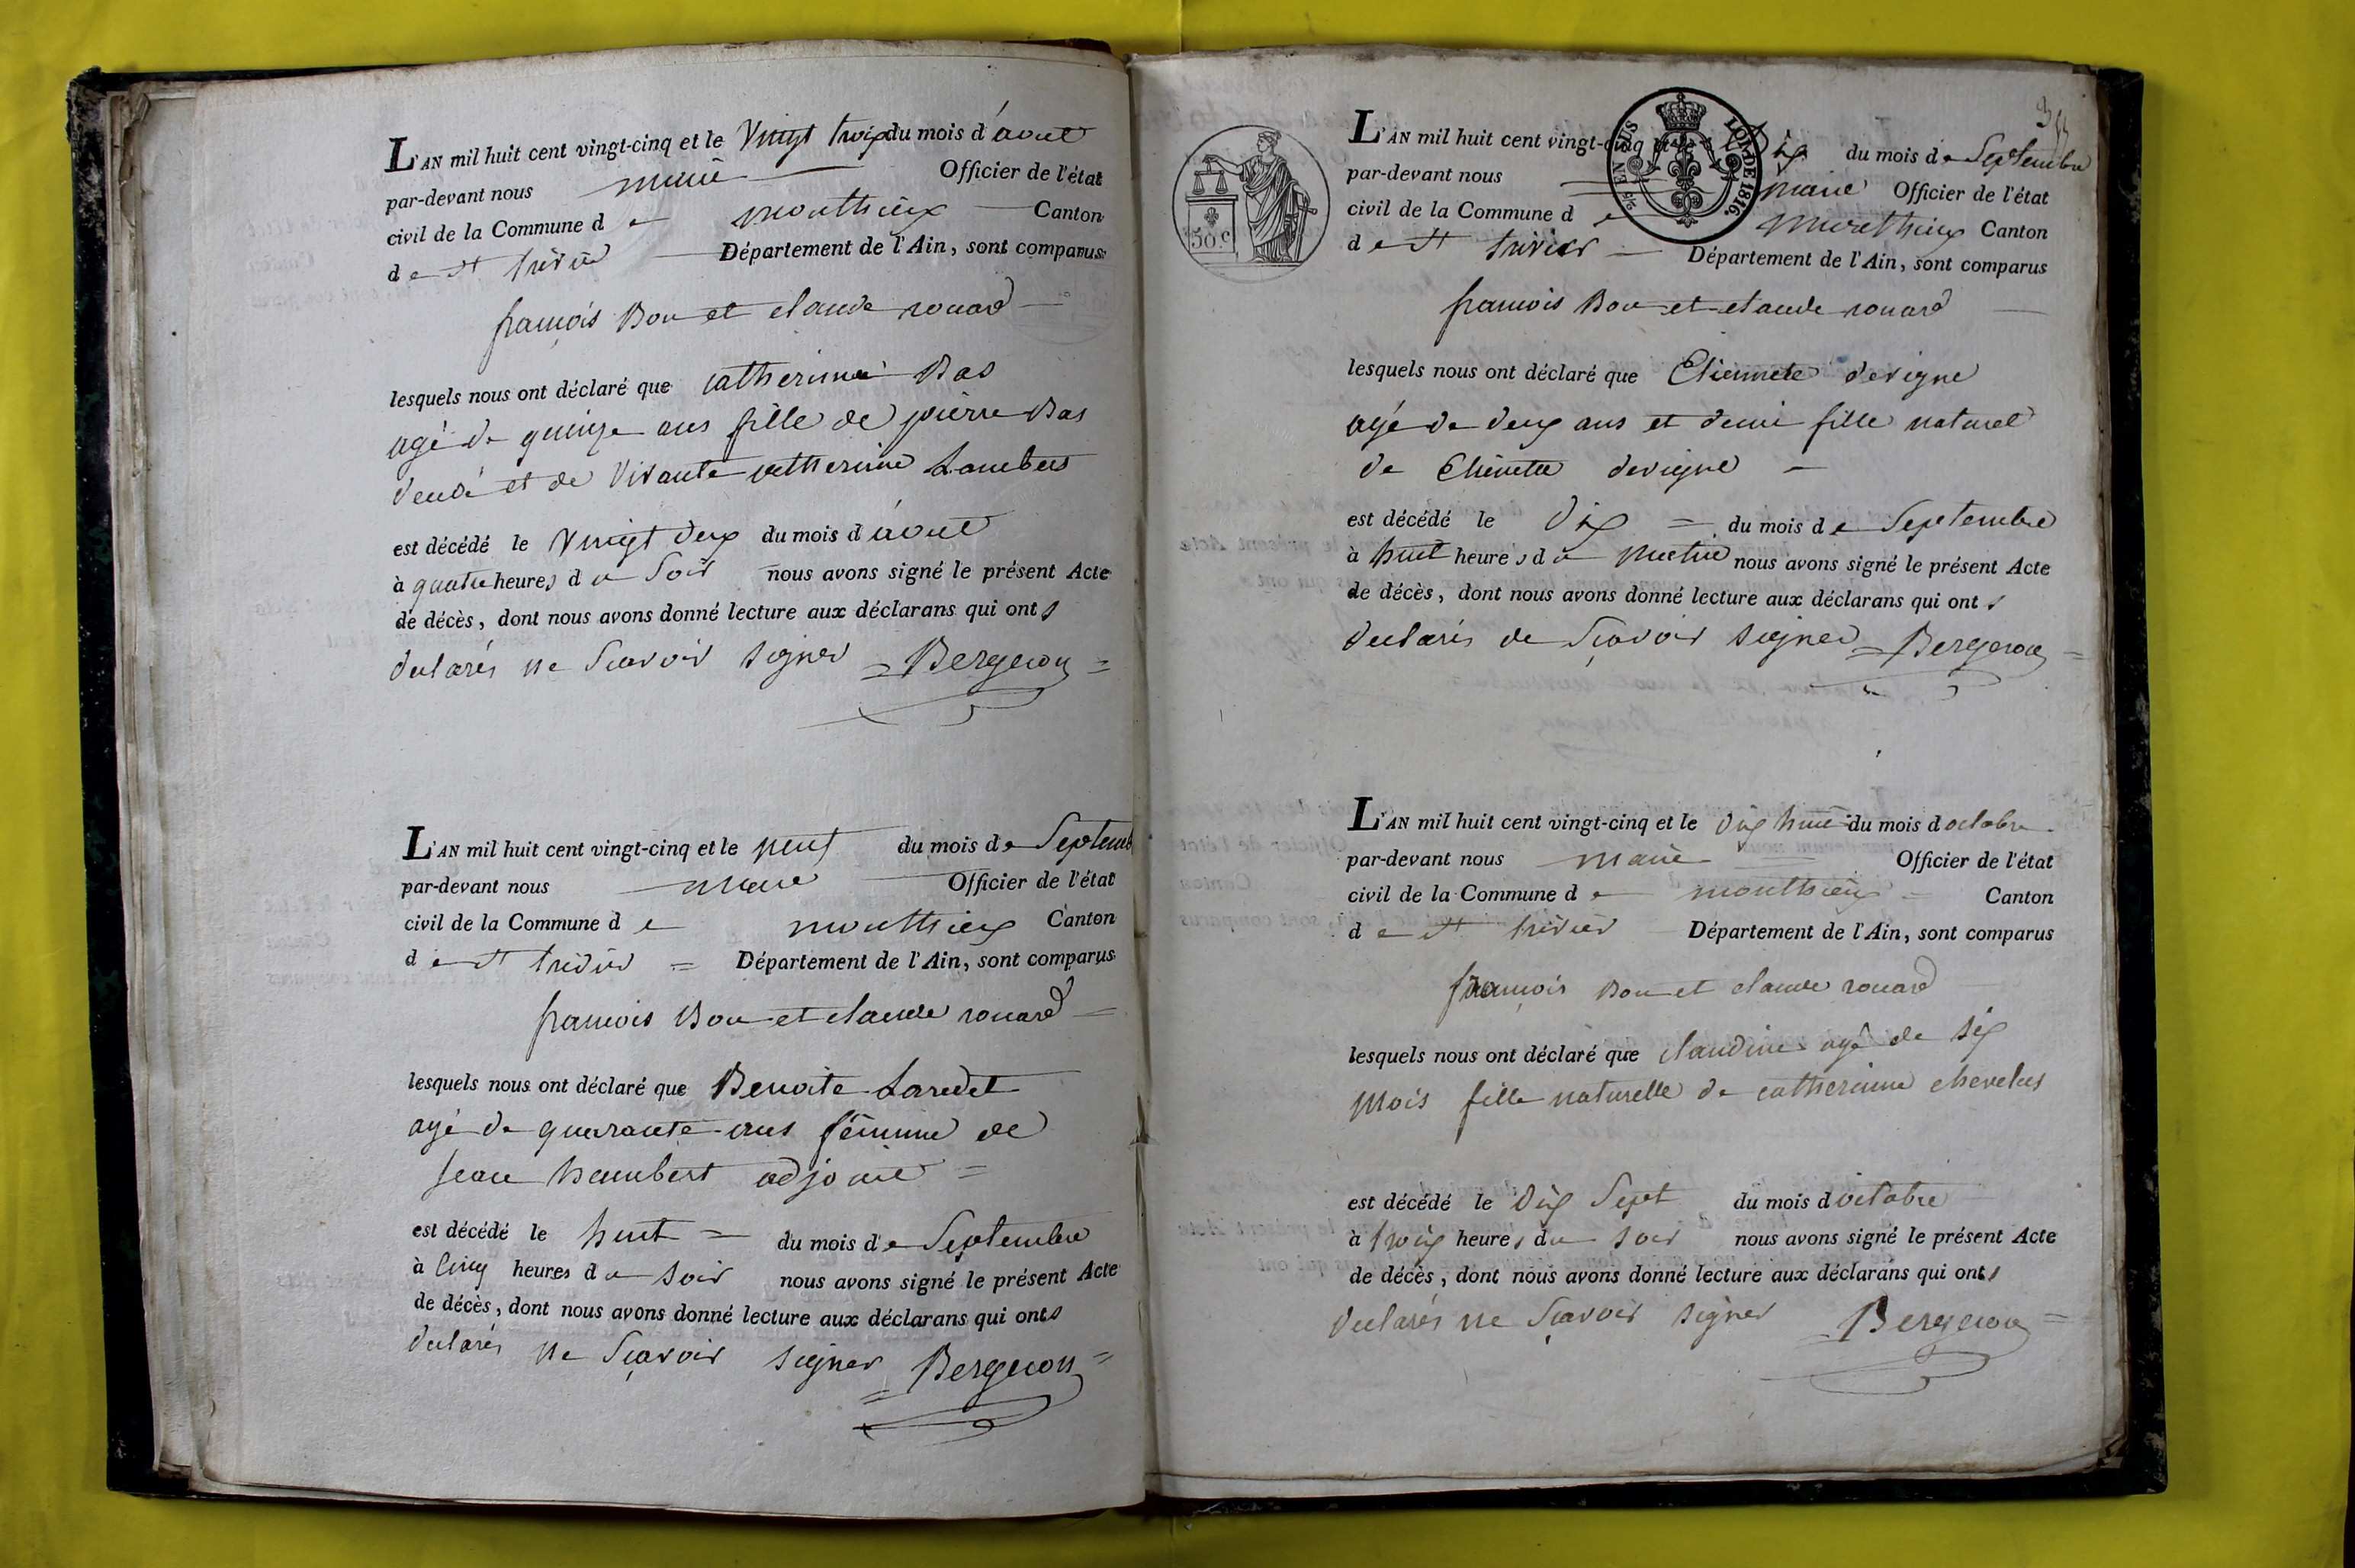 L'AN mil huit cent vingt-cinq et le Vingt trois du mois d'aout
par-devant nous maire Officier de l'état
civil de la Commune de monthieux Canton
de st trivier Département de l'Ain, sont comparus
françois Bon et claude rouard
lesquels nous ont déclaré que catherinne Bas
agé de quinze ans fille de pierre Bas
et de Vivante catherine Lambert
est décédé le Vingt deux du mois d'aout
à quatre heures du Soir nous avons signé le présent Acte
de décès, dont nous avons donné lecture aux déclarans qui ont
declarés ne Scavoir Signer = Bergeron =
L'AN mil huit cent vingt-cinq et le neuf du mois de Septemb
par-devant nous maire Officier de l'état
civil de la Commune de monthieux Canton
de st trivier = Département de l'Ain, sont comparus
francois Bon et claude rouard =
lesquels nous ont déclaré que Benoite Laredet
agé de quarante ans femme de
jean humbert adjoint =
est décédé le huit = du mois de Septembre
à cinq heures du soir nous avons signé le présent Acte
de décès, dont nous avons donné lecture aux déclarans qui ont
declarés ne Sçavoir signer = Bergeron =
50 c
EN SUS
LOI DE 1816
L'AN mil huit cent vingt-cinq et le Dix du mois de Septembre
par-devant nous maire Officier de l'état
civil de la Commune de monthieux Canton
de st trivier Département de l'Ain, sont comparus
francois Bon et claude rouard
lesquels nous ont déclaré que Etiennete devigne
agé de deux ans et demi fille naturel
de Etienette devigne
est décédé le Dix = du mois de Septembre
à huit heures du matin nous avons signé le présent Acte
de décès, dont nous avons donné lecture aux déclarans qui ont
declarés de Sçavoir signer = Bergeron =
L'AN mil huit cent vingt-cinq et le dix huit du mois d octobre
par-devant nous maire Officier de l'état
civil de la Commune de monthieux Canton
de st trivier Département de l'Ain, sont comparus
françois Bon et claude rouard
lesquels nous ont déclaré que claudine agé de six
mois fille naturelle de catherinne chevelus
est décédé le dix Sept du mois d octobre
à trois heures du soir nous avons signé le présent Acte
de décès, dont nous avons donné lecture aux déclarans qui ont
declarés ne Sçavoir signer = Bergeron =